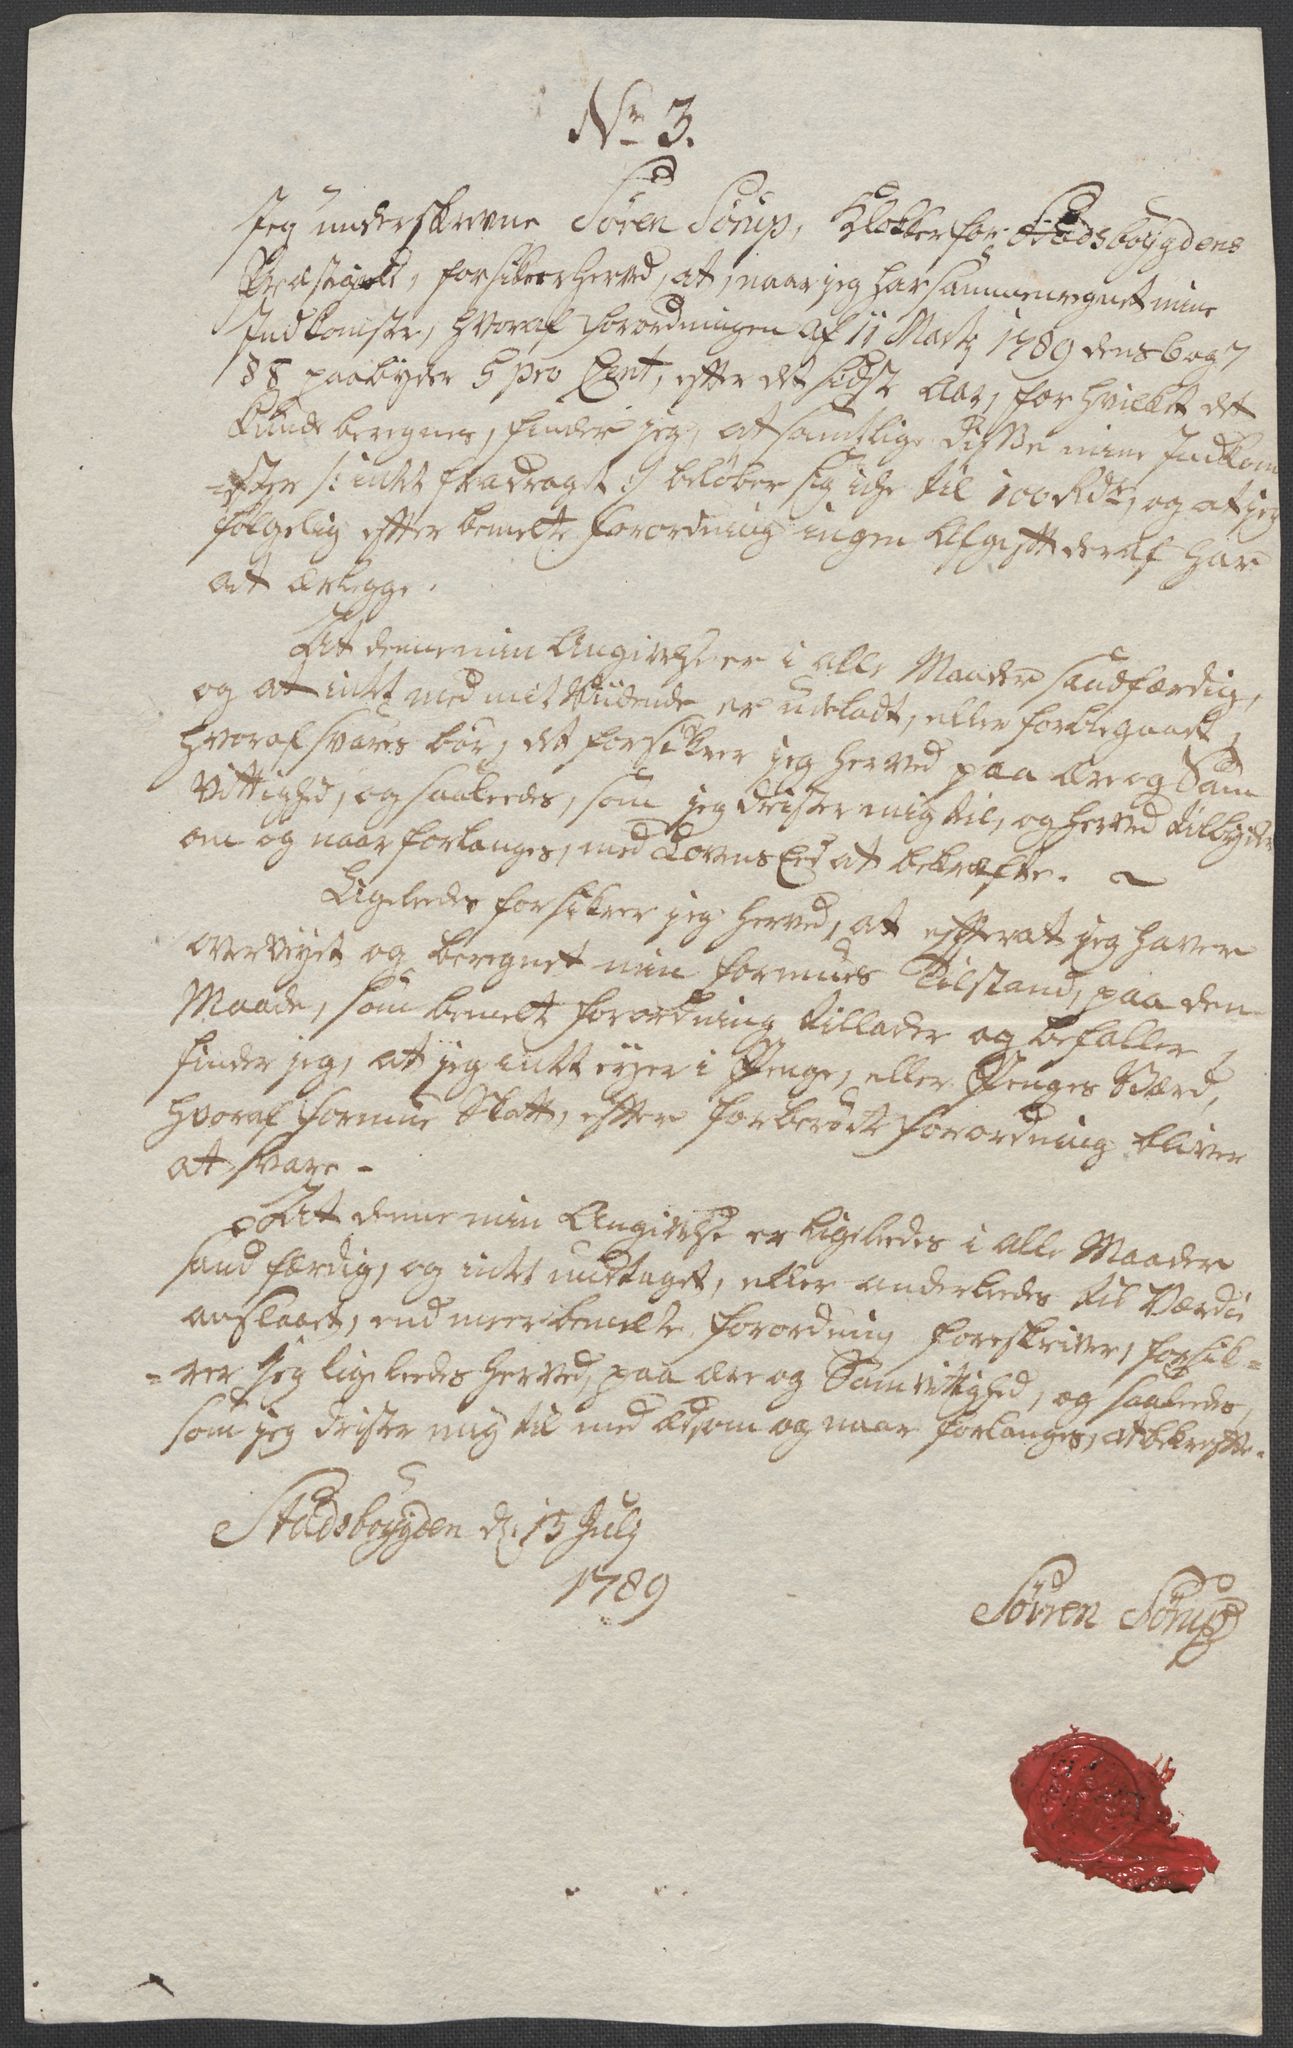 No 3.
Jeg underskrevne Sören Sörup, Klokker for Stadsboÿgdens
Præstegield, forsikrer herved, at, naar jeg har sammenregnet mine
Indkomster, hvoraf Forordningen af 11 Martj 1789 dens 6 og 7
§§ paabyder 5 pro Cent, efter det sidste Aar, for hvilket det
kunde beregnes, finder jeg, at samtlige disse mine Indkom
=ster /: intet fradraget :/ beløber sig iche til 100 Rdr, og at jeg
følgelig efter bemelte Forordning ingen Afgift deraf har
at ærlegge.
At denne min Angivelse er i alle Maader sandfærdig,
og at intet med mit Viidende er udeladt, eller forbiegaaet,
hvoraf svares bør, det forsikrer jeg herved paa ære og Sam
vittighed, og saaleedes, som jeg drister mig til, og herved tilbyder
om og naar forlanges, med Lovens Eed at bekræfte.
Ligeleedes forsikrer jeg herved, at efterat jeg haver
overvejet og beregnet min Formues Tilstand, paa den
Maade, som bemelte Forordning tillader og befaller,
finder jeg, at jeg intet eyer i Penge, eller Penges Værd,
hvoraf Formue Skatt, efter forberørte Forordning bliver
at svare -
At denne min Angivelse er ligeleedes i alle Maader
sandfærdig, og intet undtaget, eller anderleedes til Værdi
anslaaet, end meerbemelte Forordning foreskriver, forsik=
=rer jeg ligeleedes herved, paa ære og Samvittighed, og saaleedes,
som jeg drister mig til med Æd, om og naar forlanges, at bekrefte.
Stadsboÿgden d: 13 Julj
1789
Sören Sörup